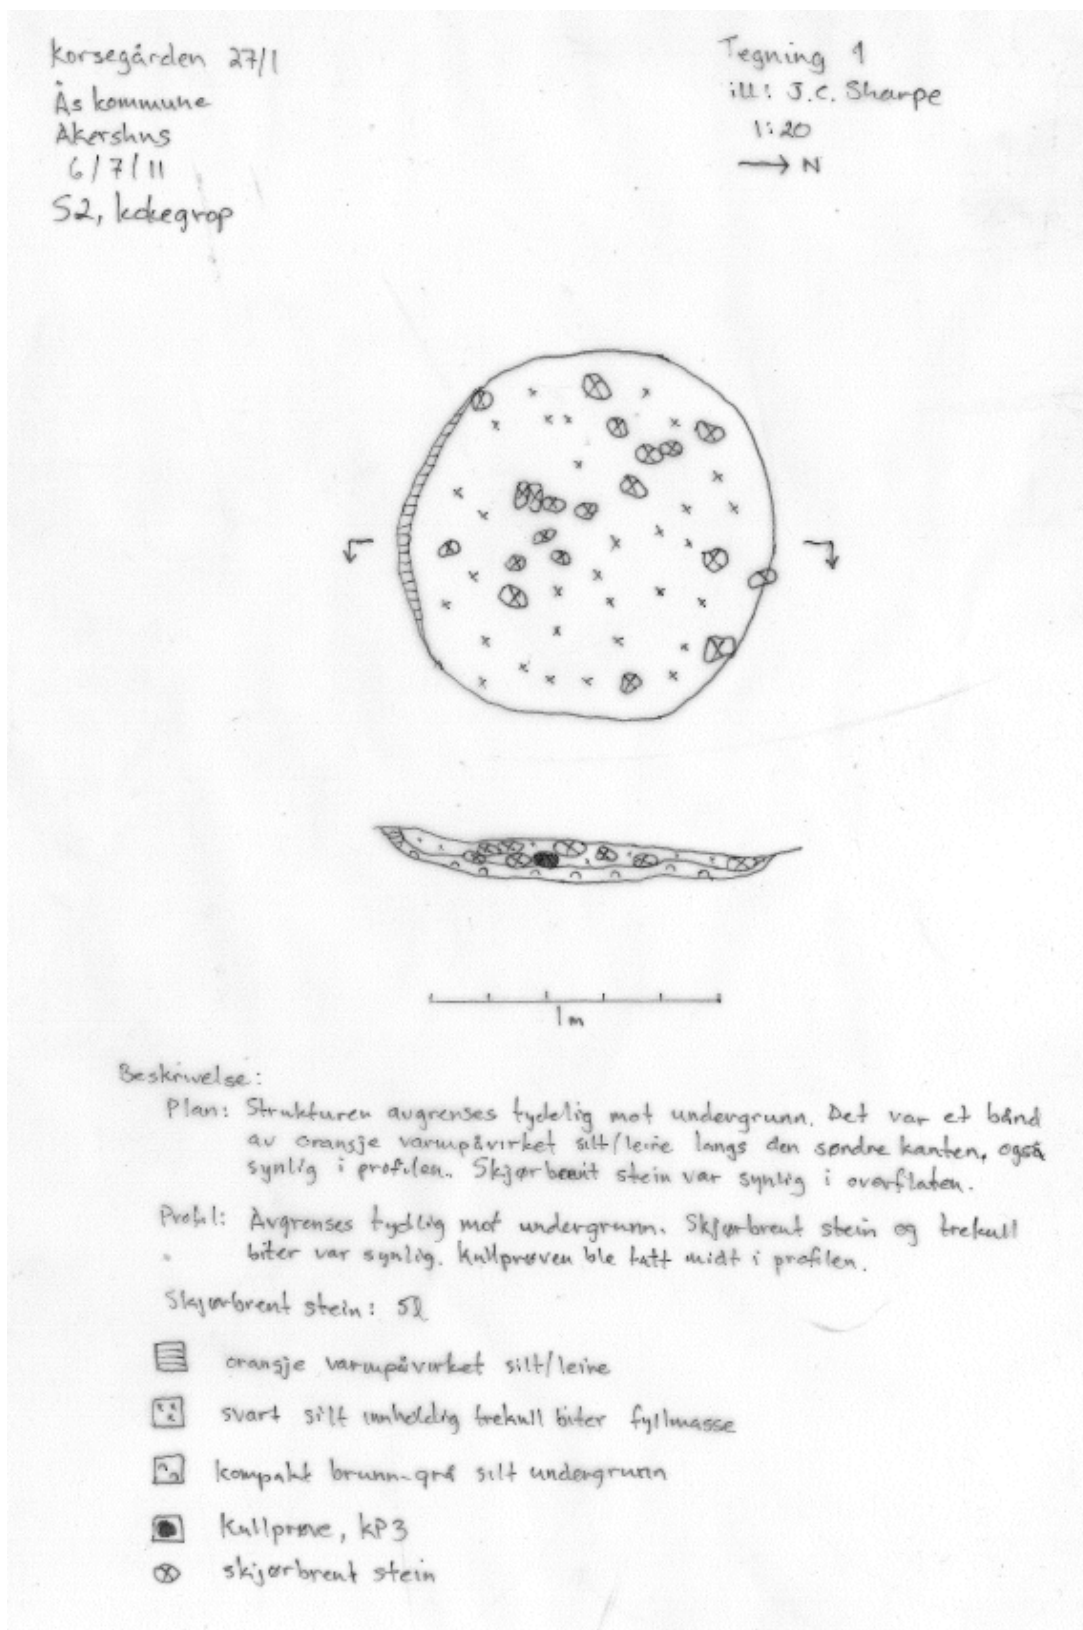 Korsegården 27/1
Ås kommune
Akershus
6/7/11
S2, kokegrop
Tegning 1
ill: J.C. Sharpe
1:20
→ N
1m
Beskrivelse:
Plan: Strukturen avgrenses tydelig mot undergrunn. Det var et bånd
av oransje varmpåvirket silt/leire langs den søndre kanten, også
synlig i profilen. Skjørbrent stein var synlig i overflaten.
Profil: Avgrenses tydlig mot undergrunn. Skjørbrent stein og trekull
biter var synlig. Kullprøven ble tatt midt i profilen.
Skjørbrent stein: 5l
oransje varmpåvirket silt/leire
svart silt innholdig trekull biter fyllmasse
kompakt brunn-grå silt undergrunn
Kullprøve, KP3
skjørbrent stein